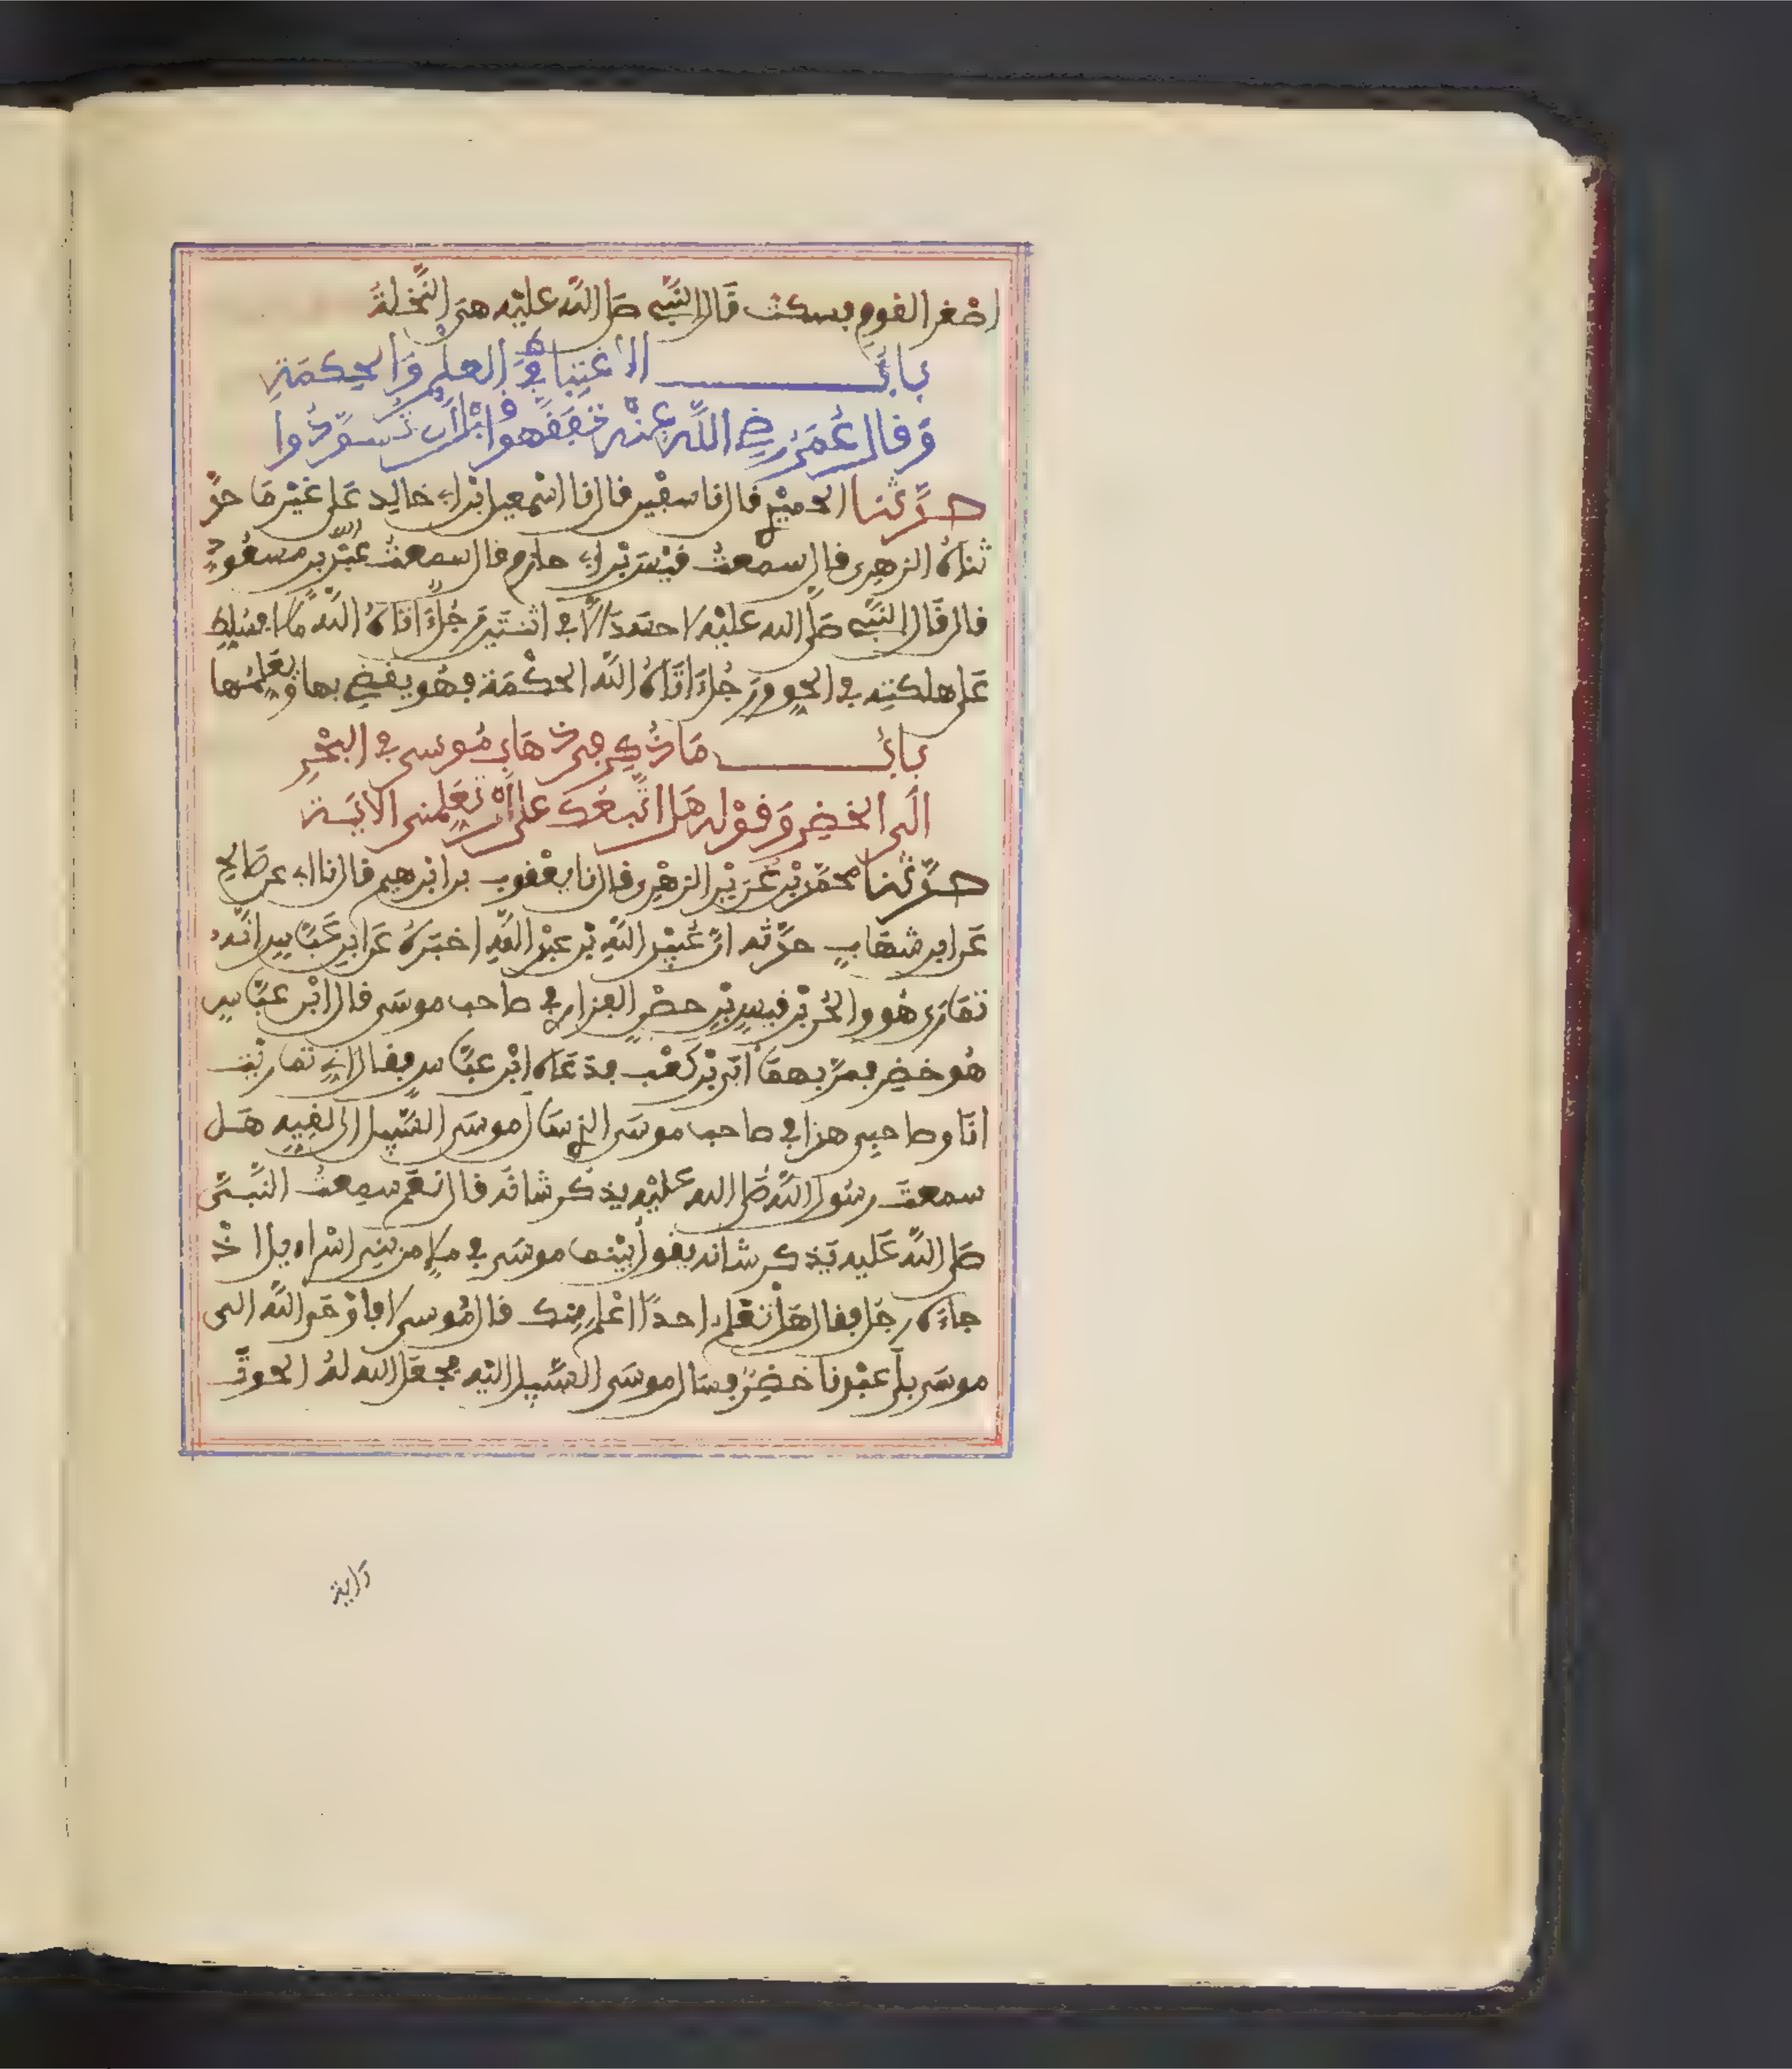 اصغر القوم فسكت قال النبي صلى الله عليه هى النخلة
باب الاغتباط في العلم والحكمة
وقال عمر رضي الله عنه تفقهوا قبل ان تسودوا
حدثنا الحميدي قال نا سفين قال نا اسمعيل ابن ابي خالد على غير ما حد
ثناه الزهري قال سمعت قيس بن ابي حازم قال سمعت عبد الله بن مسعود
قال قال النبي صلى الله عليه لا حسد الا في اثنتين رجل اتاه الله مالا فسلط
على هلكته في الحق ورجل اتاه الله الحكمة فهو يقضي بها ويعلمها
باب ما ذكر في ذهاب موسى في البحر
الى الخضر وقوله هل اتبعك على ان تعلمنى الاية
حدثنا محمد بن غرير الزهري قال نا يعقوب بن ابرهيم قال نا ابي عن صالح
عن ابن شهاب حدثه ان عبيد الله بن عبد الله اخبره عن ابن عباس انه
تمارى هو والحر بن قيس بن حصن الفزاري في صاحب موسى قال ابن عباس
هو خضر فمر بهما ابي بن كعب فدعاه ابن عباس فقال اني تماريت
انا وصاحبي هذا في صاحب موسى الذي سال موسى السبيل الى لقيه هل
سمعت رسول الله صلى الله عليه يذكر شانه قال نعم سمعت النبي
صلى الله عليه يذكر شانه يقول بينما موسى في ملإ من بني اسراءيل اذ
جاءه رجل فقال هل تعلم احدا اعلم منك قال موسى لا فاوحى الله الى
موسى بلى عبدنا خضر فسال موسى السبيل اليه فجعل الله له الحوت
ءاية